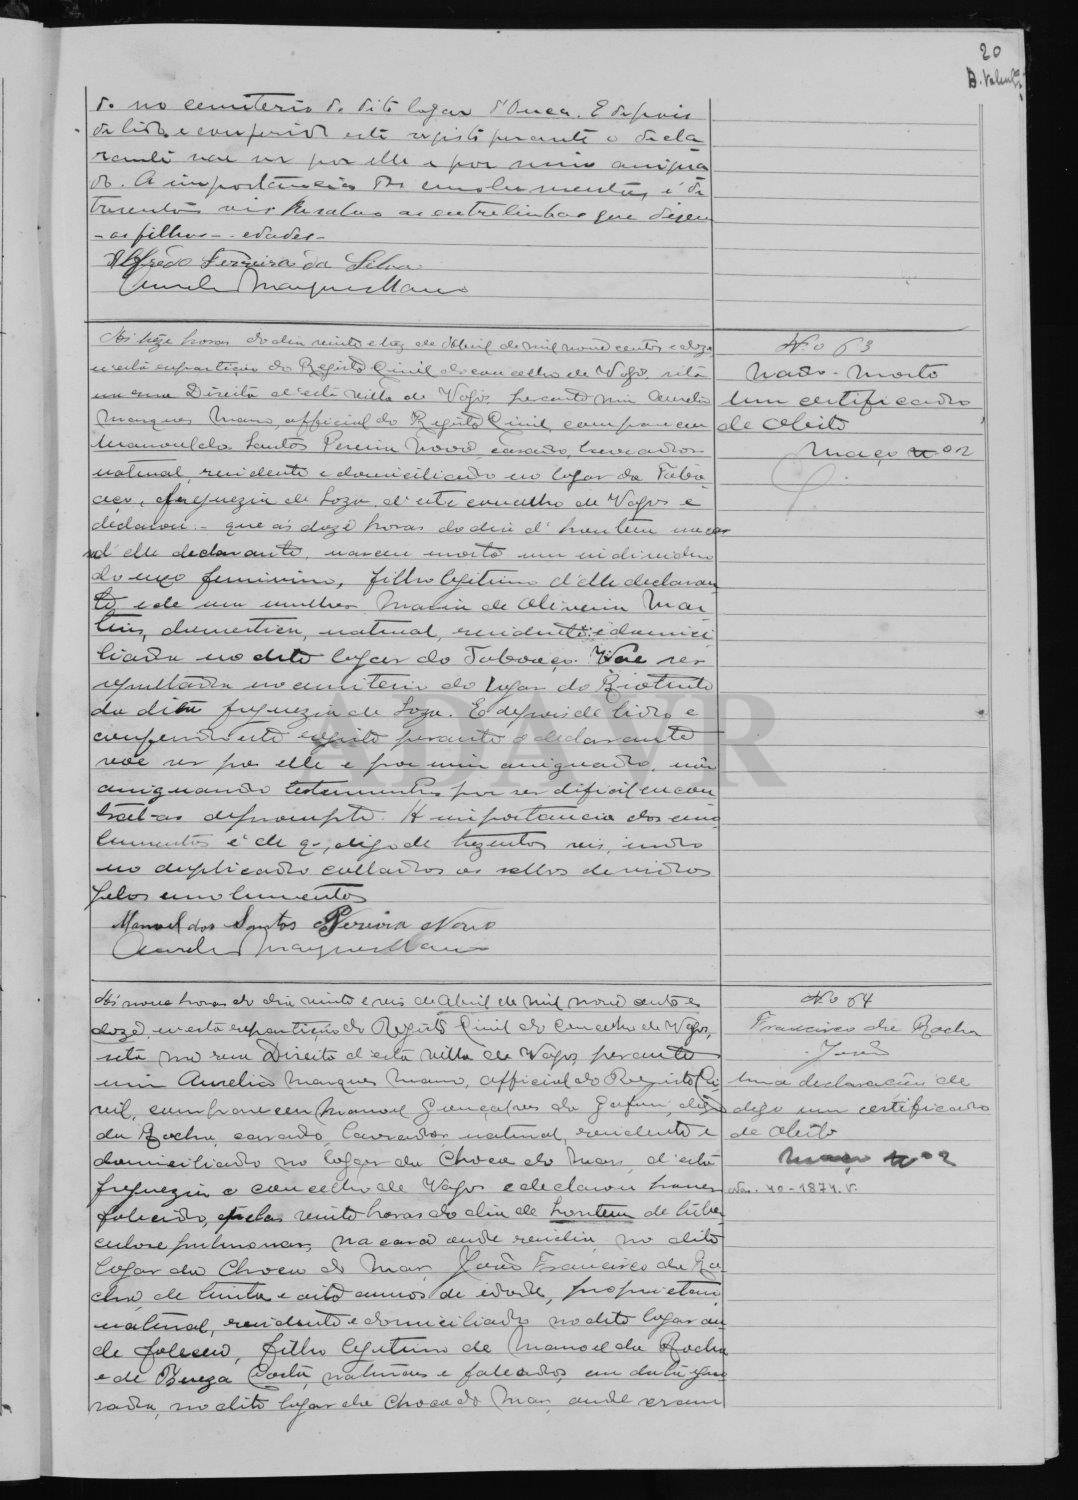 20
B. Valente
do no cemiterio do dito logar d'Ouca. E depois
de lido e conferido este registo perante o decla
rante vae ser por elle e por mim assigna
do. A importancia dos emolumentos é de
trezentos reis. Resalvo as entrelinhas que dizem
- as filhos - - edades -
Alfredo Ferreira da Silva
Aurelio Marques Mano
Ás treze horas do dia vinte e tres de Abril de mil nove centos e doze
n'esta repartição do Registo Civil do concelho de Vagos, sita
na rua Direita d'esta villa de Vagos, perante mim Aurelio
Marques Mano, official do Registo Civil, compareceu
Manoel dos Santos Pereira Novo, casado, lavrador
natural, residente e domiciliado no logar do Tabo-
aço, freguezia de Soza, d'este concelho de Vagos e
declarou: - que ás doze horas do dia d'hontem na ca
sa d'elle declarante, nasceu morto um individuo
do sexo feminino, filho legitimo d'elle declaran
te e de sua mulher Maria de Oliveira Mar
tins, domestica, natural, residente e domici
liada no dito logar do Taboaço. Vae ser
sepultada no cemiterio do logar do
da dita freguezia de Soza. E depois de lido e
conferido este registo perante o declarante
vae ser por elle e por mim assignado, não
assignando testemunhas por ser dificil encon
tral-as de prompto. A importancia dos emo
lumentos é de q., digo de trezentos reis, indo
no duplicado collados os sellos devidos
pelos emolumentos
Manuel dos Santos Pereira Novo
Aurelio Marques Mano
N.º 63
Nado-morto
Um certificado
de obito
Maço nº 2
Ás nove horas do dia vinte e seis de Abril de mil nove centos e
doze, n'esta repartição do Registo Civil do Concelho de Vagos,
sita na rua Direita d'esta villa de Vagos, perante
mim Aurelio Marques Mano, official do Registo Ci
vil, compareceu Manoel Gonçalves da digo
da Rocha, casado, lavrador, natural, residente e
domiciliado no logar da Choca do Mar, d'esta
freguezia e concelho de Vagos e declarou haver
falecido, pelas vinte horas do dia de hontem de tuber
culose pulmonar, na casa onde residia, no dito
logar da Choca do Mar, João Francisco da Ro
cha, de trinta e oito annos de edade, proprietario
natural, residente e domiciliado no dito logar on
de faleceu, filho legitimo de Manoel da Rocha
e de Costa, naturaes e falecidos, em data igno
rada, no dito logar da Choca do Mar, onde eram
N.º 64
Francisco da Rocha
João
Uma declaração de
digo um certificado
de obito
Maço nº 2
40-1874. V.
ADAVR